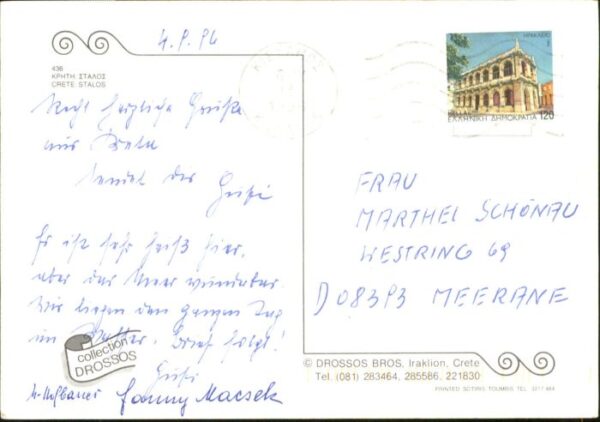 4.9.94
436
ΚΡΗΤΗ. ΣΤΑΛΟΣ
CRETE STALOS
Recht herzliche Grüße
aus Kreta
sendet der
Es ist sehr heiß hier,
aber das Meer wunderbar.
Wir liegen den ganzen Tag
im Wasser. Brief folgt!
collection
DROSSOS
Hofbauer Fanny Macsek
ΗΡΑΚΛΕΙΟ
ΕΛΛΗΝΙΚΗ ΔΗΜΟΚΡΑΤΙΑ 120
FRAU
MARTHEL SCHÖNAU
WESTRING 69
D 08393 MEERANE
© DROSSOS BROS, Iraklion, Crete
Tel. (081) 283464, 285586, 221830
PRINTED SOTIRIS TOUMBIS TEL.